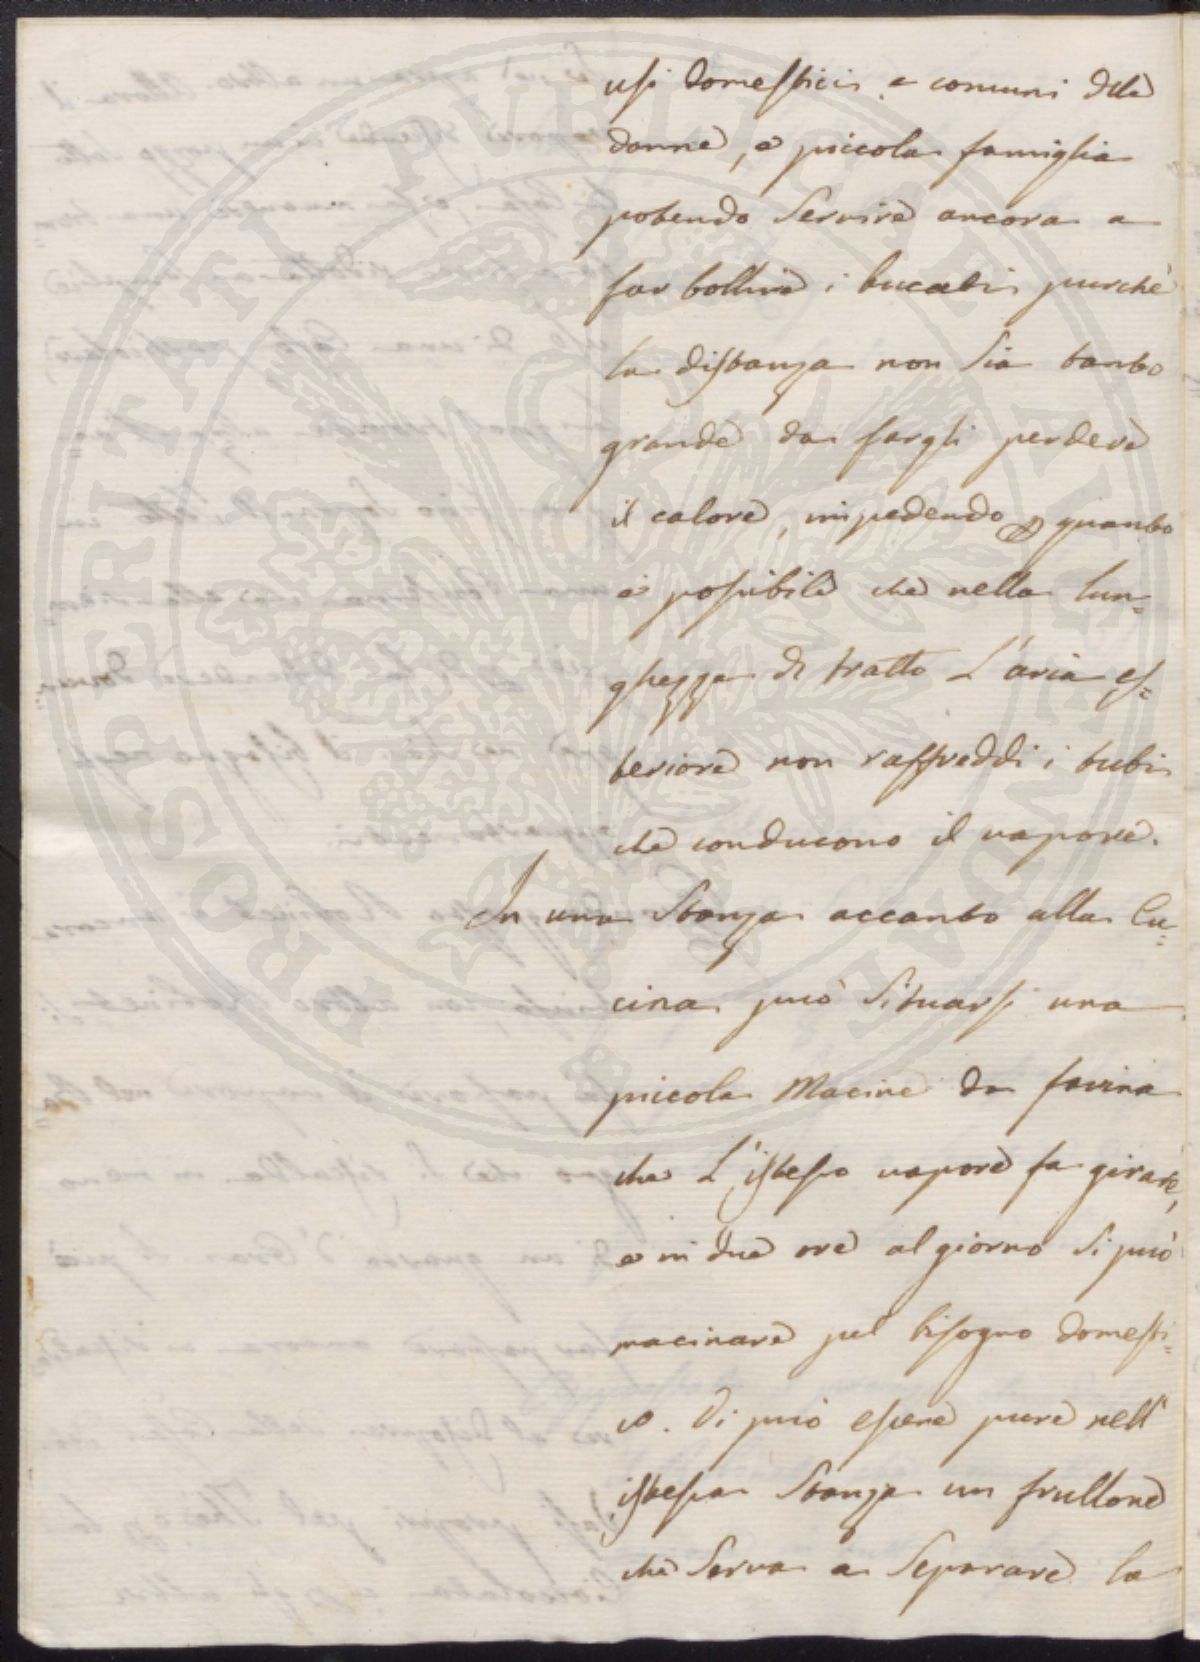 usi domestici, e comuni delle
donne, e piccola famiglia
potendo Servire ancora a
far bollire i bucati, purchè
la distanza non Sia tanto
grande da fargli perdere
il calore, impedendo quanto
è possibile che nella lun=
ghezza di tratto L'aria es=
teriore non raffreddi i tubi
che conducono il vapore.
In una Stanza accanto alla Cu=
cina può Situarsi una
piccola Macine da farina
che L'istesso vapore fa girare,
e in due ore al giorno Si può
macinare pel bisogno domesti=
co. Vi può essere pure nell'
istessa Stanza un frullone
che Serva a Separare la
PROSPERITATI PUBLICAE AUGENDAE